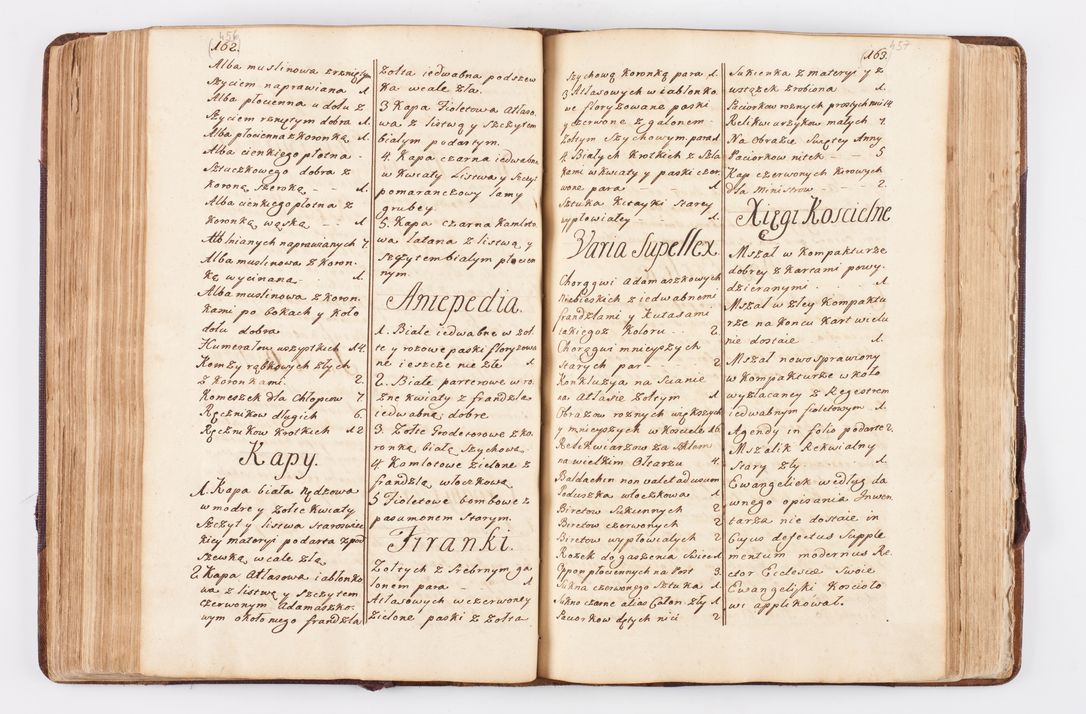 456
(162.
Alba muslinowa z rzniętym
Szyciem naprawiana 1
Alba płocienna u dołu z
Szyciem rzniętym dobra 1.
Alba płocienna z koronką 1.
Alba cienkiego płotna
Sztuczkowego dobra z
koroną szeroką - - 1.
Alba cienkiego płotna z
koronką wąską - 1.
Alb lnianych naprawianych 7.
Alba muslinowa z koron-
ką wycinaną - 1.
Alba muslinowa z koron-
kami po bokach y koło
dołu dobra
Humerałow wszystkich 14.
Komży rąbkowych złych
z koronkami. 2.
Komeszek dla Chłopcow 7.
Ręcznikow długich 6.
Ręcznikow krotkich 12
Kapy.
1. Kapa biała Nędzowa
w modre y żołte Kwiaty
Szczyt y listwa Staroswiec
kiey materyi podarta z pod
Szewką wcale złą
2. Kapa Atłasowa iabłonko
wa z listwą y Szczytem
czerwonym Adamaszko-
wym około niego frandzla
żołta iedwabna podszew
ka wcale zła.
3 Kapa Fioletowa Atłaso-
wa z listwą y Szczytem
białym podartym.
4. Kapa czarna iedwabna
w Kwiaty Listwa y Szczyt
pomaranczowy lamy
grubey.
5. Kapa czarna Kamloto
wa łatana z listwą y
Szczytem białym płocien
nym.
Antepedia.
1. Białe iedwabne w żoł
te y rożowe paski floryzowa
ne ieszcze nie złe 1.
2. Białe parterowe w ro-
żne kwiaty z frandzlą
iedwabną dobre
3. Żołte Grodetorowe z ko-
ronką białą Szychową
4 Kamlotowe zielone z
frandzlą włoczkową
5 Fioletowe bombowe z
pasamonem Starym.
Firanki.
Żołtych z Srebrnym ga
lonem para - 1
Atłasowych w czerwoney
Zielone paski z żołtą
457
(163.
Szychową koronką para 1.
3 Atłasowych w iabłonko
we floryzowane paski
y czerwone z galonem
żołtym Szychowym para 1.
4. Białych krotkich z Szla
kami w kwiaty y paski czer
wone para 1.
Sztuka Kitayki Starey
wypłowiałey - 1.
Varia Supellex.
Chorągwi Adamaszkowych
Niebieskich z iedwabnemi
frandzlami y Kutasami
takiegoż Koloru. . 2.
Chorągwi mnieyszych
Starych par - - 2
Konkluzya na Scianie
na Atłasie żołtym 1.
Obrazow rożnych większych
y mnieyszych w Kosciele 16.
Relikwiarzow za szkłem
na wielkim Ołtarzu 4.
Baldachin non valet ad usum
Poduszka włoczkowa 1
Biretow Sukiennych 2
Biretow czerwonych 2
Biretow wypłowiałych 2
Rożek do gaszenia Swiec 1
Oppon płociennych na Post 3.
Sukna czerwonego Sztuka 1
Sukno czarne alias Całon. zły 1
Paciorkow dętych nici 2
Sukienka z materyi y z
wstążek zrobiona 1.
Paciorkow rożnych prostych nici 14
Relikwiarzykow małych 7.
Na Obrazie Swiętey Anny
Paciorkow nitek - - 5
Kap czerwonych Kirowych
dla Ministrow - - 2.
Xięgi Koscielne
Mszał w Kompakturze
dobrey z kartami powy-
dzieranymi . 1.
Mszał w złey Kompaktu
rze na Koncu kart wielu
nie dostaie 1.
Mszał nowo sprawiony
w Kompakturze w koło
wyzłacaney z Regestrem
iedwabnym fioletowym 1.
Agendy in folio podarte 2.
Mszalik Rekwialny
Stary zły 1.
Ewangeliek według da
wnego opisania Inwen
tarza nie dostaie in
Cuyus defectus Supple
mentum modernus Re
ctor Ecclesiæ Swoie
Ewangelijki Kosciolo
wi applikował.